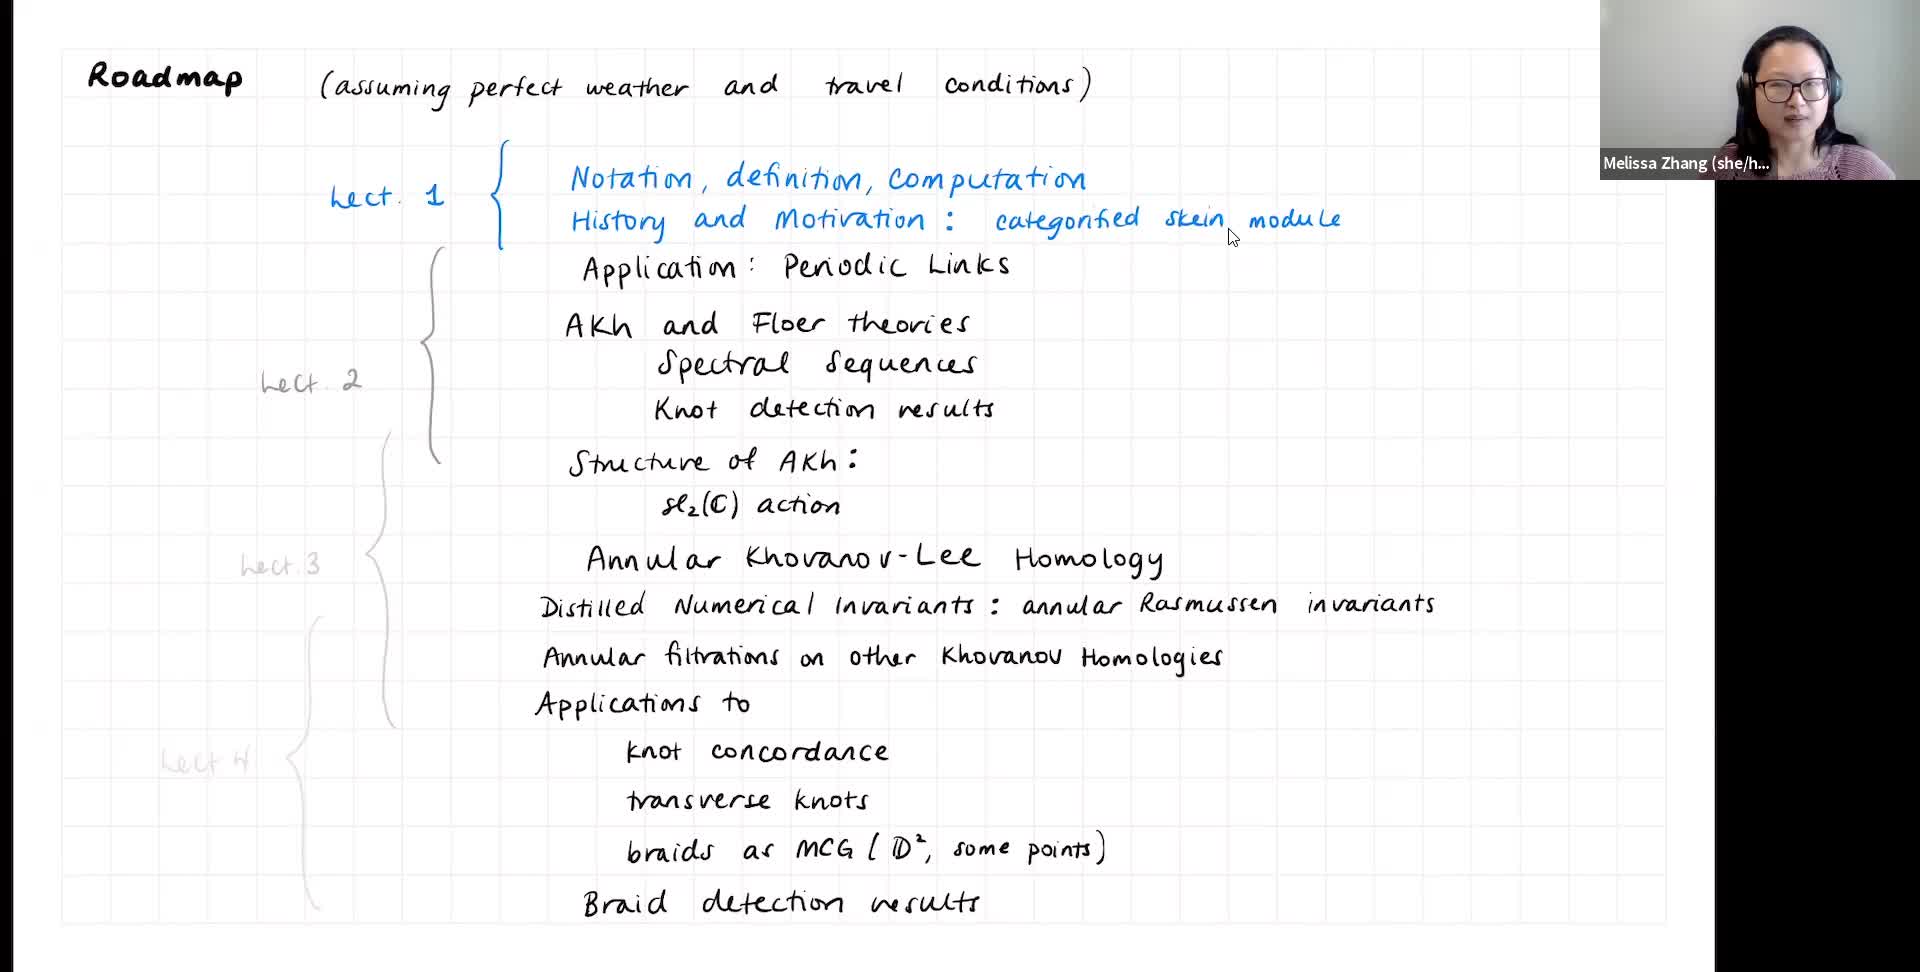 Roadmap (assuming perfect weather and travel conditions)
Melissa Zhang (she/h...
Lect. 1
Notation, definition, computation
History and Motivation: categorified skein module
Application: Periodic Links
Lect. 2
AKh and Floer theories
Spectral Sequences
Knot detection results
Structure of AKh:
sl₂(ℂ) action
Lect. 3
Annular Khovanov-Lee Homology
Distilled Numerical Invariants: annular Rasmussen invariants
Annular filtrations on other Khovanov Homologies
Applications to
Lect 4
knot concordance
transverse knots
braids as MCG (𝔻², some points)
Braid detection results